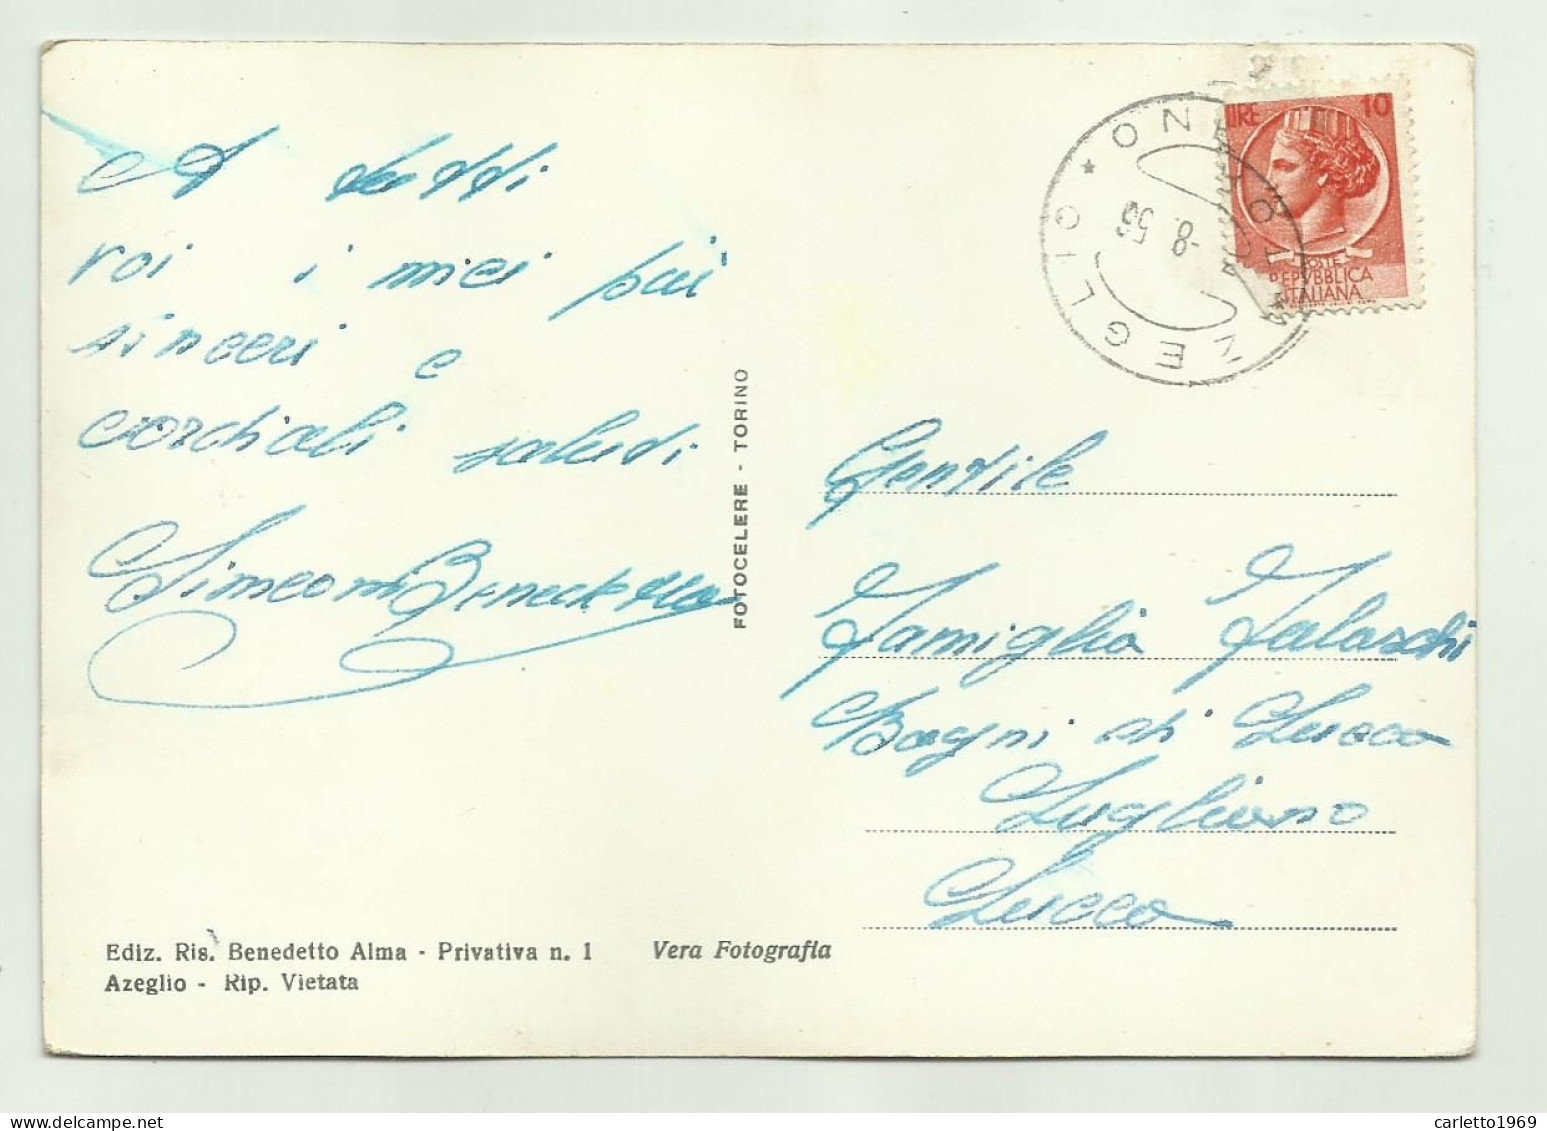 A tutti
voi i miei più
sinceri e
cordiali saluti
Simeoni Benedetta
FOTOCELERE - TORINO
LIRE 10
POSTE
REPVBBLICA
ITALIANA
AZEGLIO * TORINO *
-8. 56
Gentile
Famiglia Falaschi
Bagni di Lucca
Lugliano
Lucca
Ediz. Ris. Benedetto Alma - Privativa n. 1 Vera Fotografia
Azeglio - Rip. Vietata
carletto1969